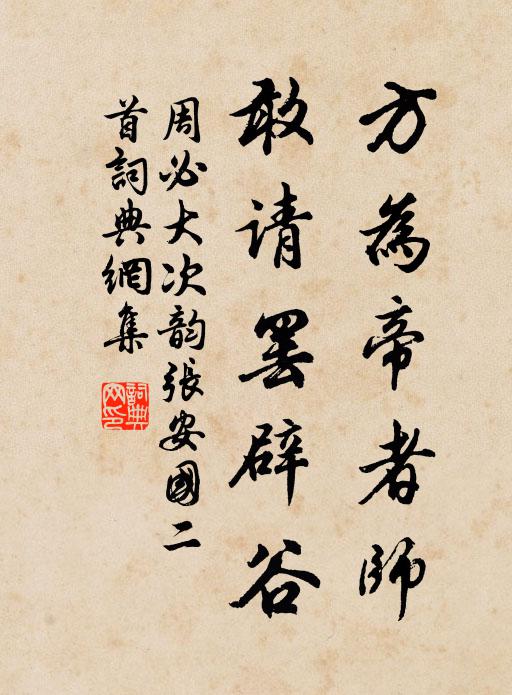 方為帝者師
敢请罢辟谷
周必大次韵張安國二
首詞典網集
詞典
网印